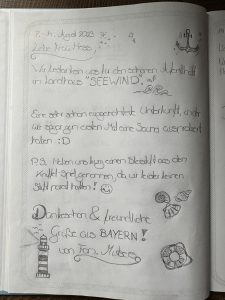 7.-14. April 2023
Liebe Frau Hess,
Wir bedanken uns für den schönen
im Landhaus "SEEWIND".
Eine sehr schön eingerichtete Unterkunft, in der
wir sogar zum ersten Mal eine Sauna ausprobiert
haben :D
P.S. Haben uns einen Bleistift aus dem
Kniffel Spiel genommen, da wir leider keinen
Stift parat hatten!
Dankeschön & freundliche
Grüße aus BAYERN!
von Fam.